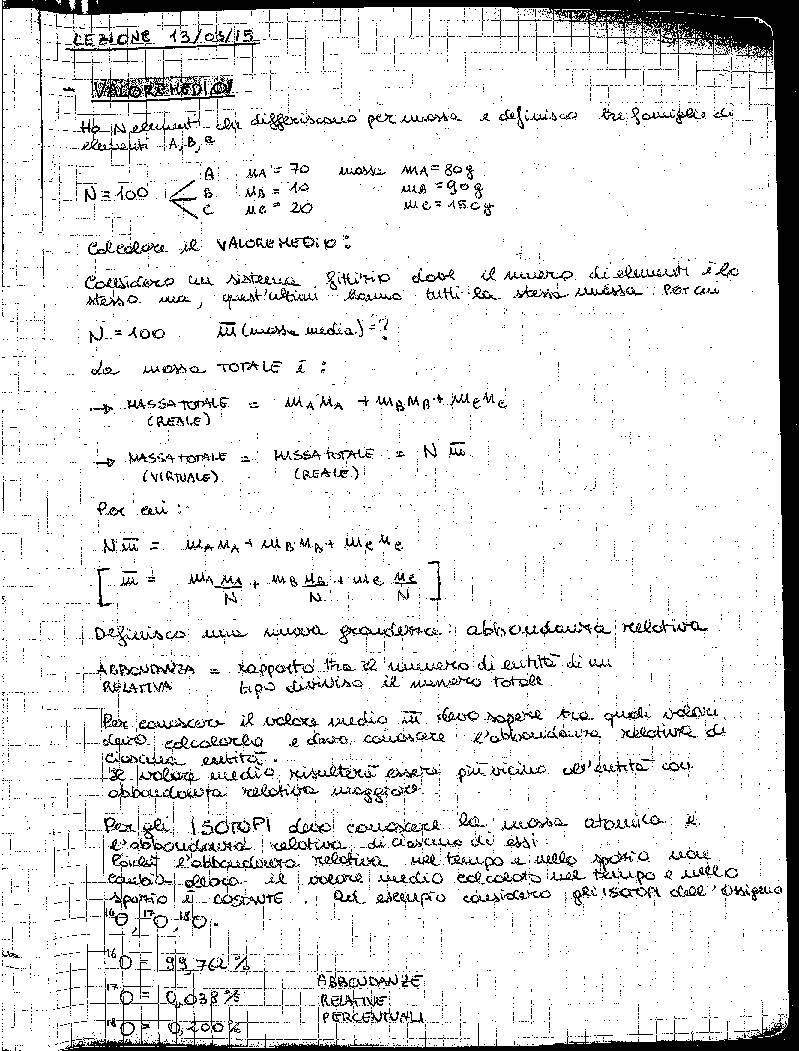 LEZIONE 13/03/15
- VALORE MEDIO
Ho N elementi che differiscono per massa e definisco tre famiglie di
elementi A, B, C
A nA = 70 massa mA = 80g
N = 100 B nB = 10 mB = 90g
C nC = 20 mC = 150g
Calcolare il VALORE MEDIO:
Considero un sistema fittizio dove il numero di elementi è lo
stesso ma, quest'ultimi hanno tutti la stessa massa. Per cui
N = 100 m̅ (massa media) = ?
La massa TOTALE è:
→ MASSA TOTALE = mA nA + mB nB + mC nC
(REALE)
→ MASSA TOTALE = MASSA TOTALE = N m̅
(VIRTUALE) (REALE)
Per cui:
N m̅ = mA nA + mB nB + mC nC
[ m̅ = mA nA/N + mB nB/N + mC nC/N ]
Definisco una nuova grandezza: abbondanza relativa
ABBONDANZA = rapporto tra il numero di entità di un
RELATIVA tipo diviso il numero totale
Per conoscere il valore medio m̅ devo sapere tra quali valori
devo calcolarlo e devo conoscere l'abbondanza relativa di
ciascuna entità.
Il valore medio risulterà essere più vicino all'entità con
abbondanza relativa maggiore.
Per gli ISOTOPI devo conoscere la massa atomica e
l'abbondanza relativa di ciascuno di essi.
Poiché l'abbondanza relativa nel tempo e nello spazio non
cambia allora il valore medio calcolato nel tempo e nello
spazio è COSTANTE. Ad esempio considero gli ISOTOPI dell'ossigeno
¹⁶O, ¹⁷O, ¹⁸O.
¹⁶O = 99,762 %
ABBONDANZE
¹⁷O = 0,038 % RELATIVE
PERCENTUALI
¹⁸O = 0,200 %